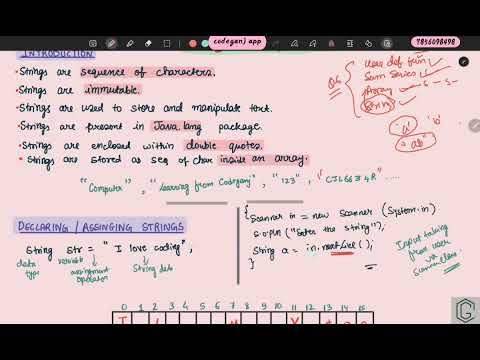 codeganj app
7856098498
INTRODUCTION
• Strings are sequence of characters.
• Strings are immutable.
• Strings are used to store and manipulate text.
• Strings are present in Java.lang package.
• Strings are enclosed within double quotes.
• Strings are stored as seq of char inside an array.
user def fun
Sum Series
Array
String
'a' 'b'
"ab"
"Computer", "learning from Codeganj", "123",
DECLARING / ASSINGING STRINGS
String str = " I love coding";
data type
variable
assignment operator
String data
{ Scanner in = new Scanner (System.in)
S.o.pln ("Enter the String");
String a = in.nextLine();
}
Input taking
from user
via
Scanner class.
0 1 2 3 4 5 6 7 8 9 10 11 12 13 14 15